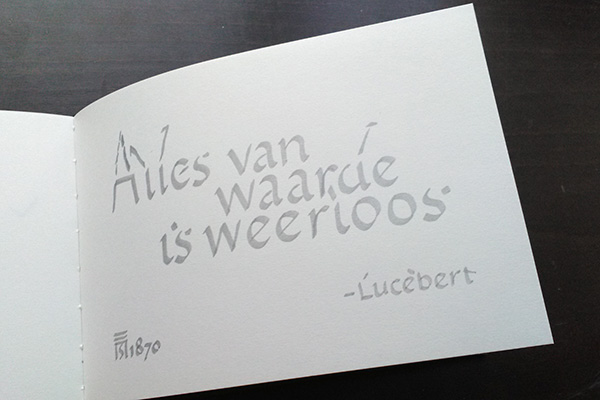 Alles van
waarde
is weerloos
-Lucebert
1870